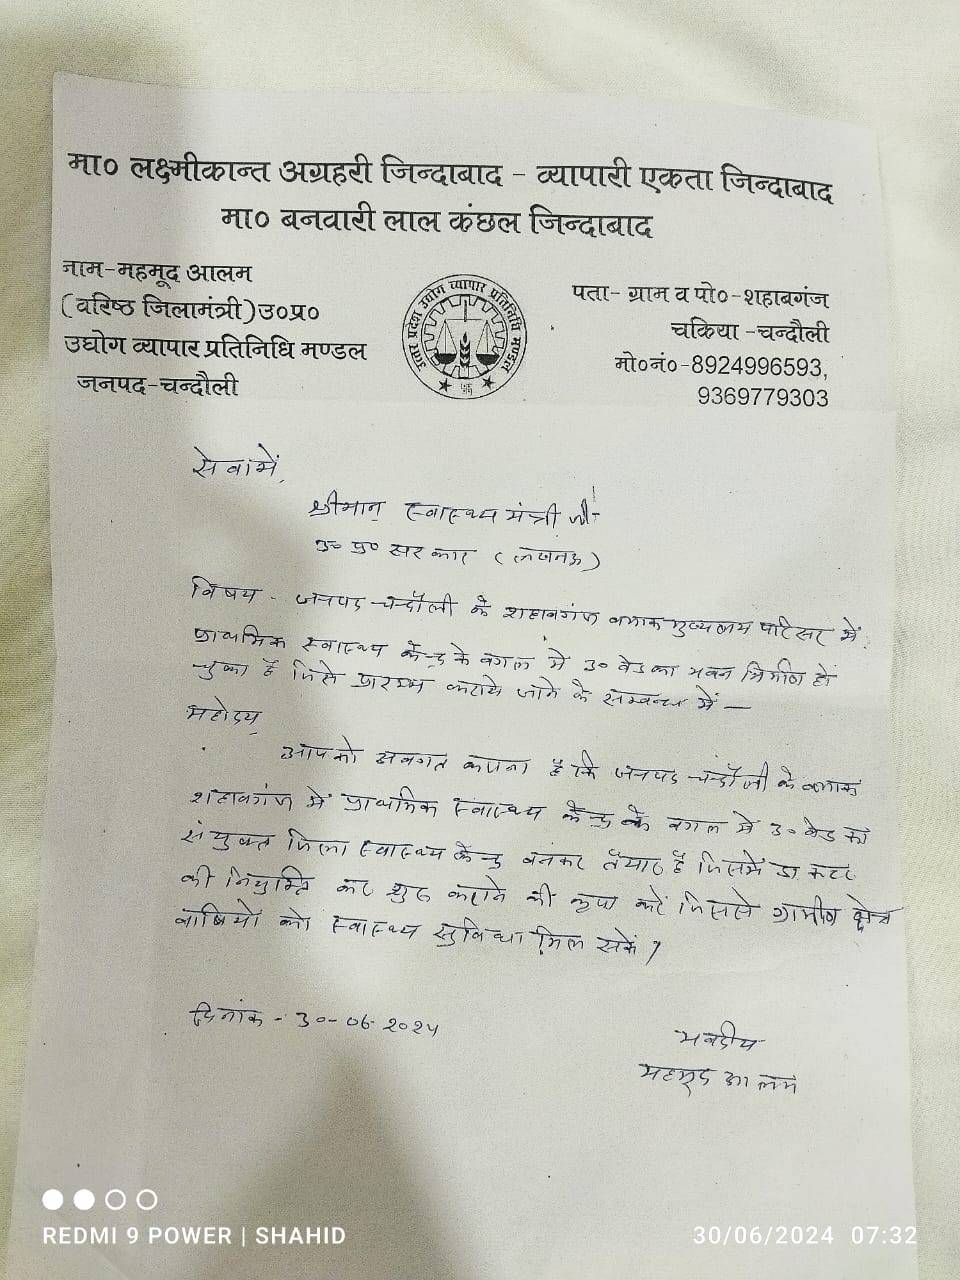 मा० लक्ष्मीकान्त अग्रहरी जिन्दाबाद - व्यापारी एकता जिन्दाबाद
मा० बनवारी लाल कंछल जिन्दाबाद
नाम-महमूद आलम
(वरिष्ठ जिलामंत्री)उ०प्र०
उघोग व्यापार प्रतिनिधि मण्डल
जनपद-चन्दौली
उत्तर प्रदेश उद्योग व्यापार प्रतिनिधि मण्डल
पता- ग्राम व पो०-शहाबगंज
चकिया -चन्दौली
मो०नं०-8924996593,
9369779303
सेवामें,
श्रीमान् स्वास्थ्य मंत्री जी!
उ० प्र० सरकार (लखनऊ)
विषय - जनपद चन्दौली के शहाबगंज ब्लाक मुख्यालय परिसर में
प्राथमिक स्वास्थ्य केन्द्र के बगल में 30 बेड का भवन निर्माण हो
चुका है जिसे प्रारम्भ कराये जाने के सम्बन्ध में -
महोदय,
आपको अवगत कराना है कि जनपद चन्दौली के ब्लाक
शहाबगंज में प्राथमिक स्वास्थ्य केन्द्र के बगल में 30 बेड का
संयुक्त जिला स्वास्थ्य केन्द्र बनकर तैयार है जिसमें डाक्टर
की नियुक्ति कर शुरू कराने की कृपा करें जिससे ग्रामीण क्षेत्र
वासियों को स्वास्थ्य सुविधा मिल सकें।
दिनांक - 30-06-2024
भवदीय
महमूद आलम
REDMI 9 POWER | SHAHID
30/06/2024 07:32